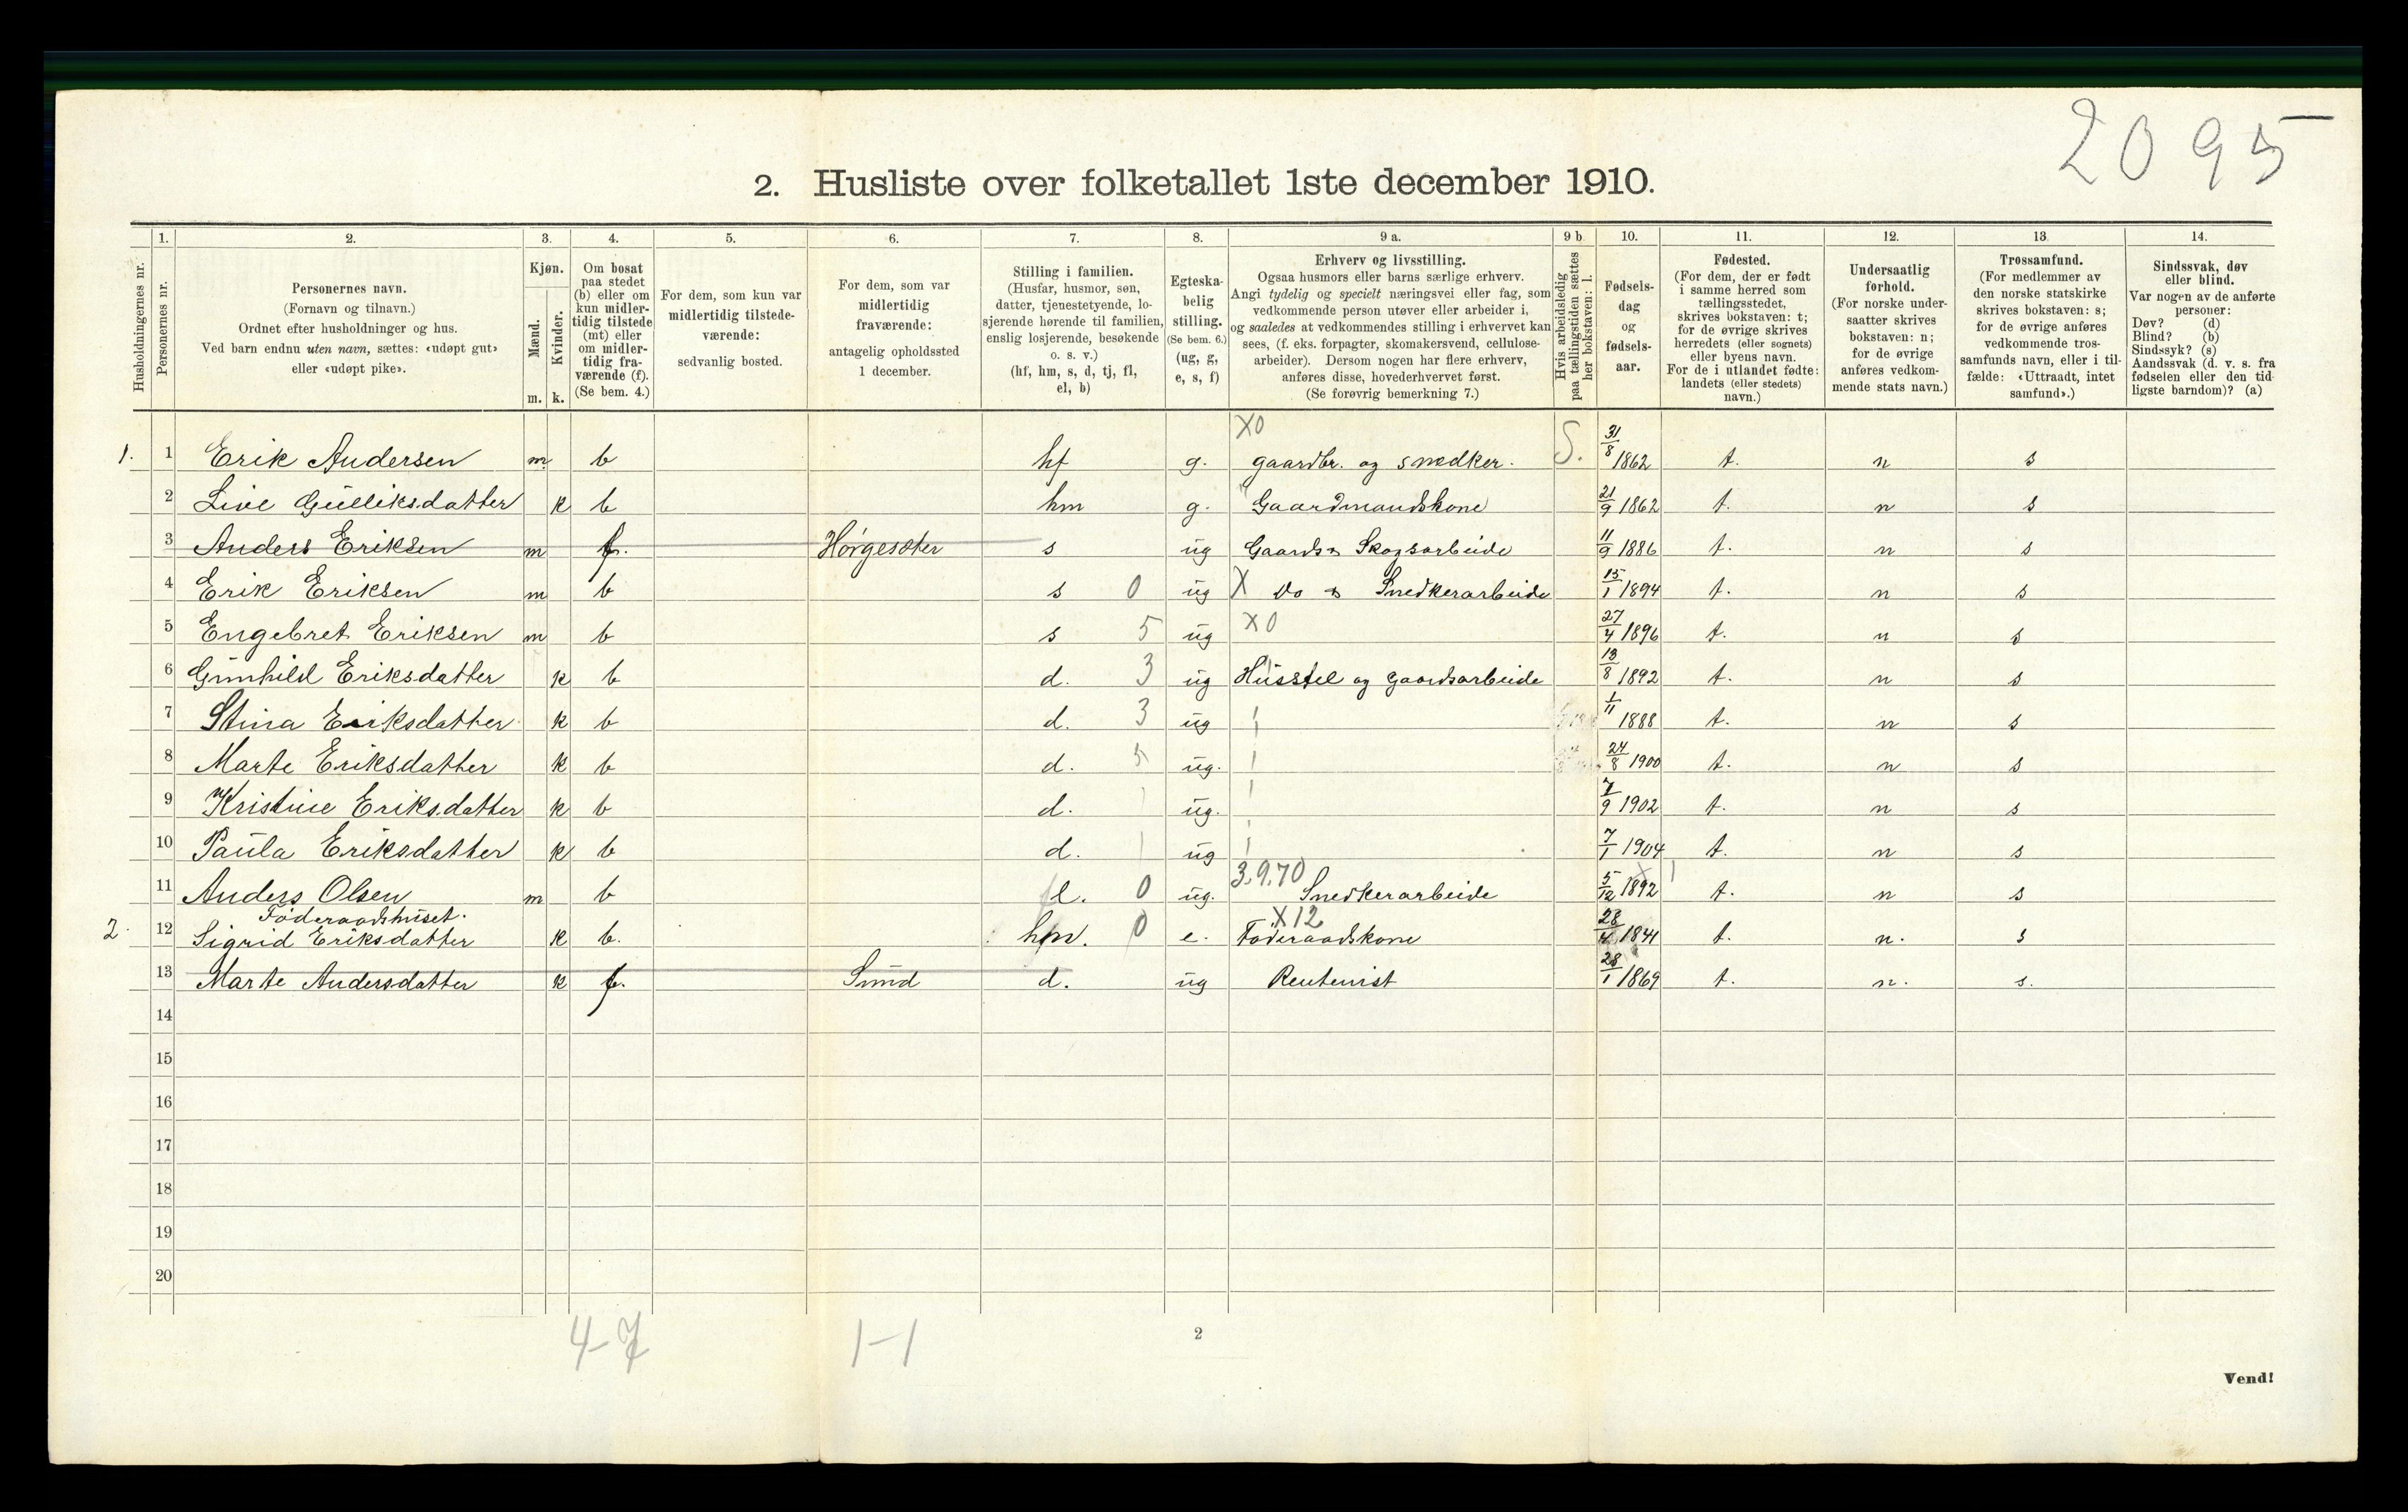 2095
2. Husliste over folketallet 1ste december 1910.
Husholdningernes nr.
1.
Personernes nr.
2.
Personernes navn.
(Fornavn og tilnavn.)
Ordnet efter husholdninger og hus.
Ved barn endnu uten navn, sættes: «udøpt gut»
eller «udøpt pike».
3.
Kjøn.
Mænd.
Kvinder.
m. k.
4.
Om bosat
paa stedet
(b) eller om
kun midler-
tidig tilstede
(mt) eller
om midler-
tidig fra-
værende (f).
(Se bem. 4.)
5.
For dem, som kun var
midlertidig tilstede-
værende:
sedvanlig bosted.
6.
For dem, som var
midlertidig
fraværende:
antagelig opholdssted
1 december.
7.
Stilling i familien.
(Husfar, husmor, søn,
datter, tjenestetyende, lo-
sjerende hørende til familien,
enslig losjerende, besøkende
o. s. v.)
(hf, hm, s, d, tj, fl,
el, b)
8.
Egteska-
belig
stilling.
(Se bem. 6.)
(ug, g,
e, s, f)
9 a.
Erhverv og livsstilling.
Ogsaa husmors eller barns særlige erhverv.
Angi tydelig og specielt næringsvei eller fag, som
vedkommende person utøver eller arbeider i,
og saaledes at vedkommendes stilling i erhvervet kan
sees, (f. eks. forpagter, skomakersvend, cellulose-
arbeider). Dersom nogen har flere erhverv,
anføres disse, hovederhvervet først.
(Se forøvrig bemerkning 7.)
9 b
Hvis arbeidsledig
paa tællingstiden sættes
her bokstaven: l.
10.
Fødsels-
dag
og
fødsels-
aar.
11.
Fødested.
(For dem, der er født
i samme herred som
tællingsstedet,
skrives bokstaven: t;
for de øvrige skrives
herredets (eller sognets)
eller byens navn.
For de i utlandet fødte:
landets (eller stedets)
navn.)
12.
Undersaatlig
forhold.
(For norske under-
saatter skrives
bokstaven: n;
for de øvrige
anføres vedkom-
mende stats navn.)
13
Trossamfund.
(For medlemmer av
den norske statskirke
skrives bokstaven: s;
for de øvrige anføres
vedkommende tros-
samfunds navn, eller i til-
fælde: «Uttraadt, intet
samfund».)
14.
Sindssvak, døv
eller blind.
Var nogen av de anførte
personer:
Døv? (d)
Blind? (b)
Sindssyk? (s)
Aandssvak (d. v. s. fra
fødselen eller den tid-
ligste barndom)? (a)
X0
1. 1 Erik Andersen m. b hf g. gaardbr. og snedker. S. 31/8 1862 t. n s
2 Live Gulliksdatter k b hm g. Gaardmandskone 21/9 1862 t. n s
3 Anders Eriksen m f. Hørgesæter s ug Gaards & Skogsarbeide 11/9 1886 t. n s
4 Erik Eriksen m b s 0 ug X do & Snedkerarbeide 15/1 1894 t. n s
5 Engebret Eriksen m b s 5 ug X0 27/4 1896 t. n s
6 Gunhild Eriksdatter k b d. 3 ug Husstel og gaardsarbeide 13/8 1892 t. n s
7 Stina Eriksdatter k b d. 3 ug 1/11 1888 t. n s
8 Marte Eriksdatter k b d. 5 ug. 24/8 1900 t. n s
9 Kristine Eriksdatter k b d. ug. 7/9 1902 t. n s
10 Paula Eriksdatter k b d. ug 7/1 1904 t. n s
3.9.70
11 Anders Olsen m b fl. 0 ug. Snedkerarbeide 5/12 1892 t. n s
Føderaadshuset. X12
2. 12 Sigrid Eriksdatter k b. hm. 0 e. Føderaadskone 28/4 1841 t. n. s
13 Marte Andersdatter k f. Sund d. ug Rentenist 28/1 1869 t. n. s.
14
15
16
17
18
19
20
4-7 1-1
2
Vend!